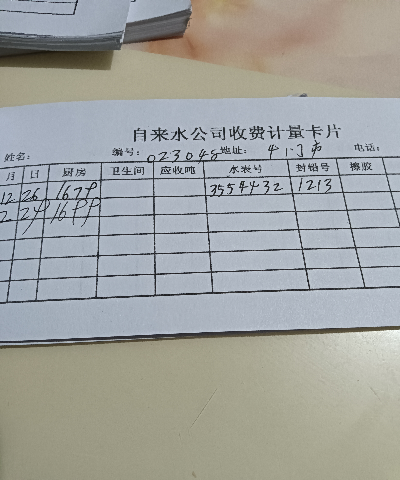 自来水公司收费计量卡片
姓名: 编号: 023048 地址: 电话:
月 日 厨房 卫生间 应收吨 水表号 封铅号 擦胶
12 26 1679 3554432 1213
2 29 1699